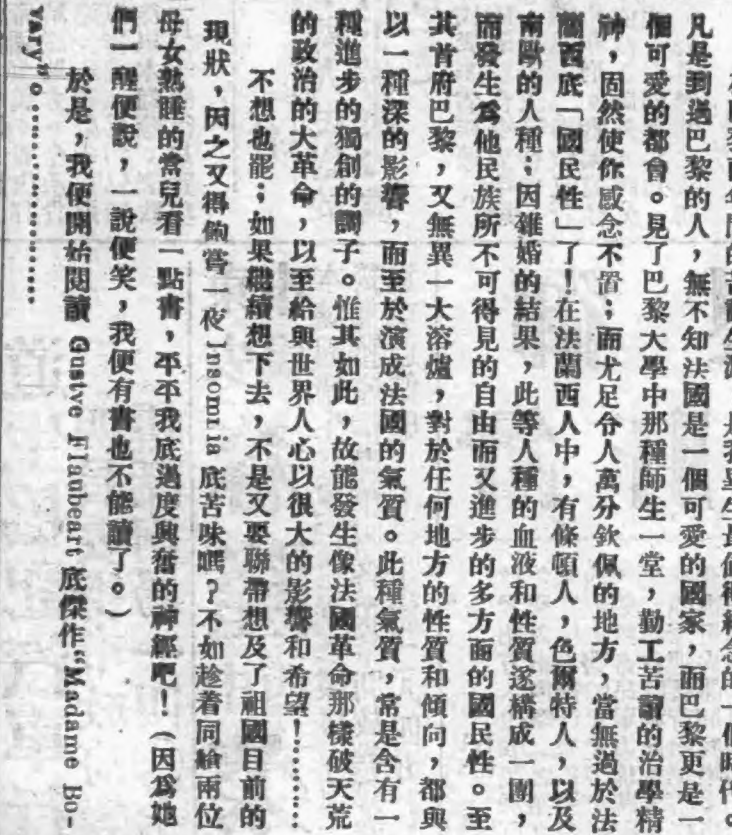 生活,是我畢生最值得紀念的一個時代。
凡是到過巴黎的人,無不知法國是一個可愛的國家,而巴黎更是一
個可愛的都會。見了巴黎大學中那種師生一堂,勤工苦讀的治學精
神,固然使你感念不置;而尤足令人萬分欽佩的地方,當無過於法
蘭西底「國民性」了!在法蘭西人中,有條頓人,色爾特人,以及
南歐的人種;因雜婚的結果,此等人種的血液和性質遂構成一團,
而發生爲他民族所不可得見的自由而又進步的多方面的國民性。至
其首府巴黎,又無異一大溶爐,對於任何地方的性質和傾向,都與
以一種深的影響,而至於演成法國的氣質。此種氣質,常是含有一
種進步的獨創的調子。惟其如此,故能發生像法國革命那樣破天荒
的政治的大革命,以至給與世界人心以很大的影響和希望!…………
不想也罷;如果繼續想下去,不是又要聯帶想及了祖國目前的
現狀,因之又得飽嘗一夜 Insomnia 底苦味嗎?不如趁着同艙兩位
母女熟睡的當兒看一點書,平平我底過度興奮的神經吧!(因爲她
們一醒便說,一說便笑,我便有書也不能讀了。)
於是,我便開始閱讀 Gustve Flaubeart 底傑作“Madame Bo-
vary”。…………………